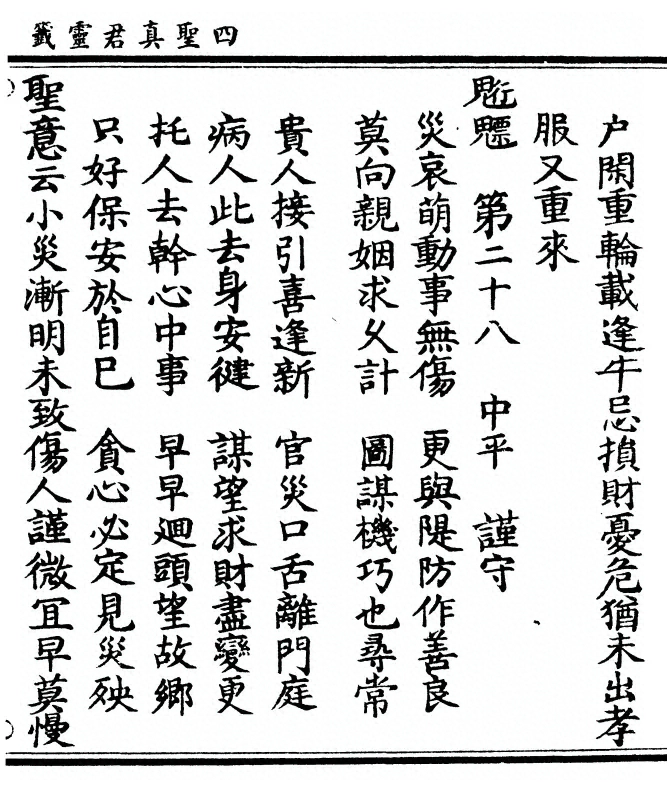 四聖真君靈籤
户閑重輪載逢牛忌損財憂危猶未出孝
服又重來
䰢魒 第二十八 中平 謹守
災哀萌動事無傷 更與隄防作善良
莫向親姻求久計 圖謀機巧也尋常
貴人接引喜逢新 官災口舌離門庭
病人此去身安健 謀望求財盡變更
托人去幹心中事 早早迴頭望故鄉
只好保安於自巳 貪心必定見災殃
聖意云小災漸明未致傷人謹微冝早莫慢